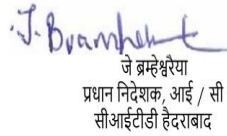 J. Bramhe
जे ब्रम्हेश्वरैया
प्रधान निदेशक, आई / सी
सीआईटीडी हैदराबाद